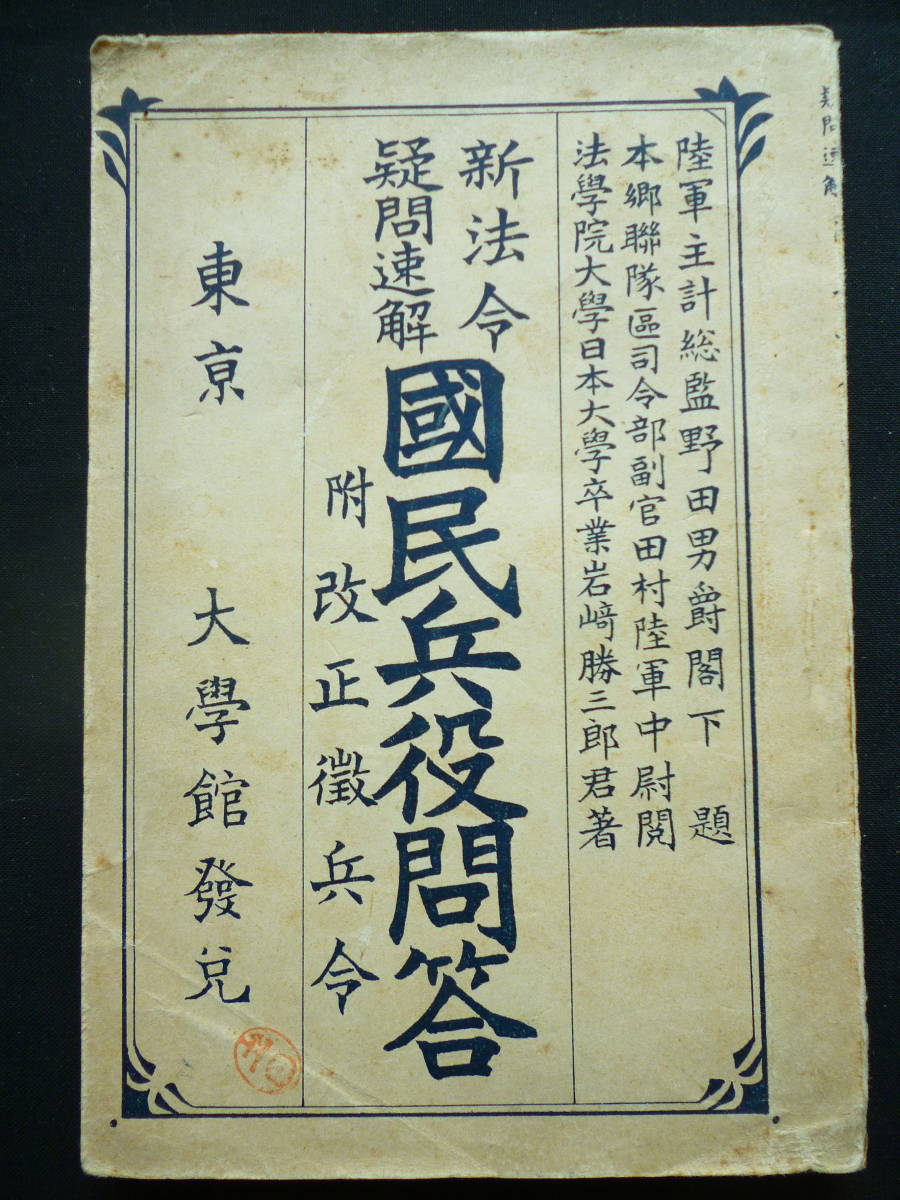 陸軍主計総監野田男爵閣下 題
本郷聯隊區司令部副官田村陸軍中尉閲
法學院大學日本大學卒業岩﨑勝三郎君著
新法令
疑問速解
國民兵役問答
附改正徴兵令
東京 大學館發兌
疑問速解